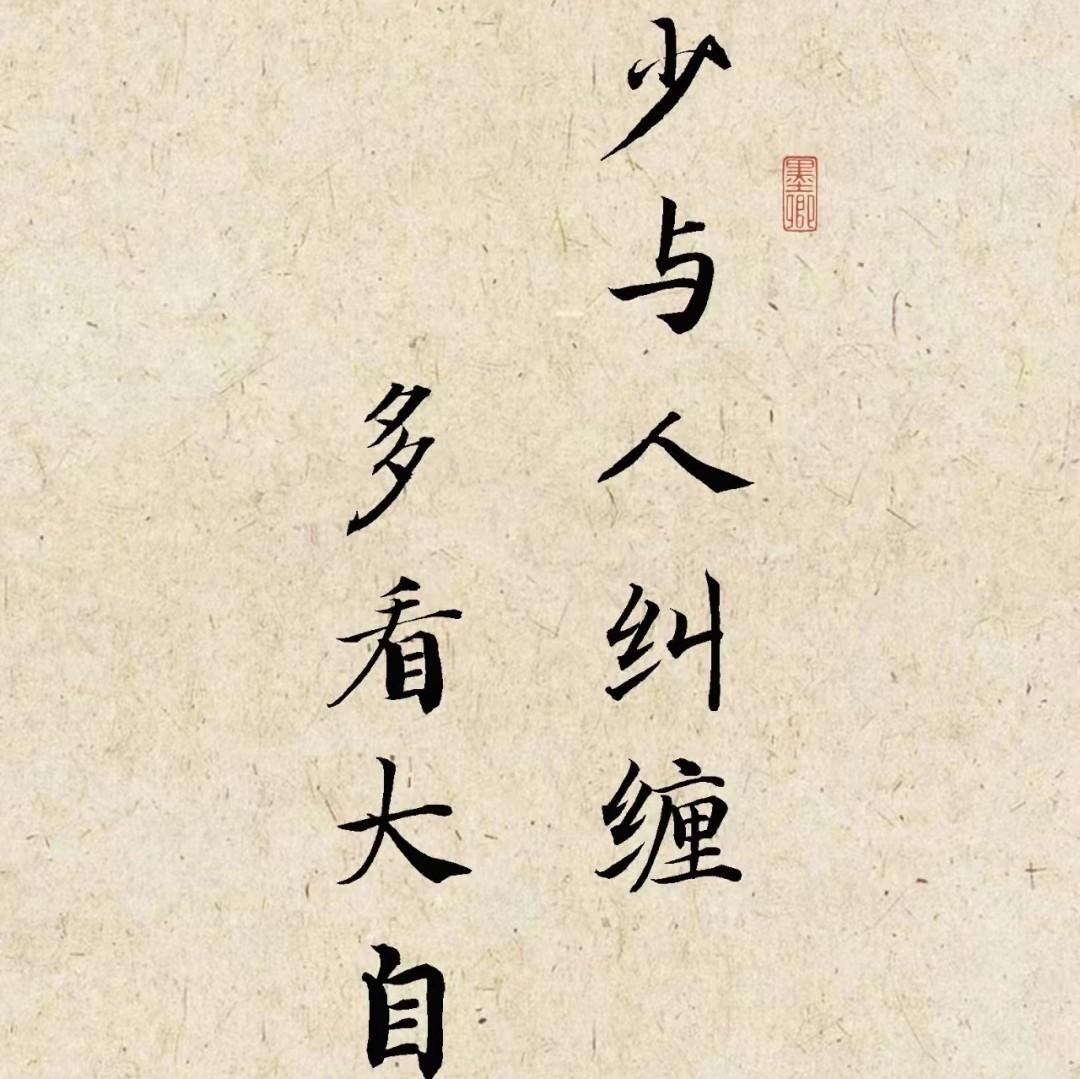 少与人纠缠
多看大自
墨卿